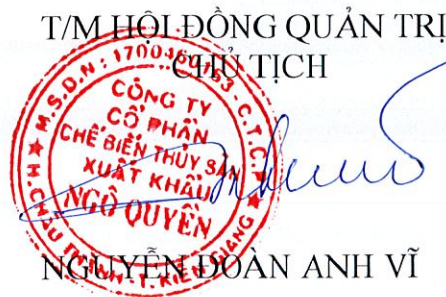 T/M HỘI ĐỒNG QUẢN TRỊ
CHỦ TỊCH
M.S.D.N: - C.T.C.P
CÔNG TY
CỔ PHẦN
CHẾ BIẾN THỦY SẢN
XUẤT KHẨU
NGÔ QUYỀN
H. CHÂU THÀNH - T. KIÊN GIANG
NGUYỄN ĐOÀN ANH VĨ